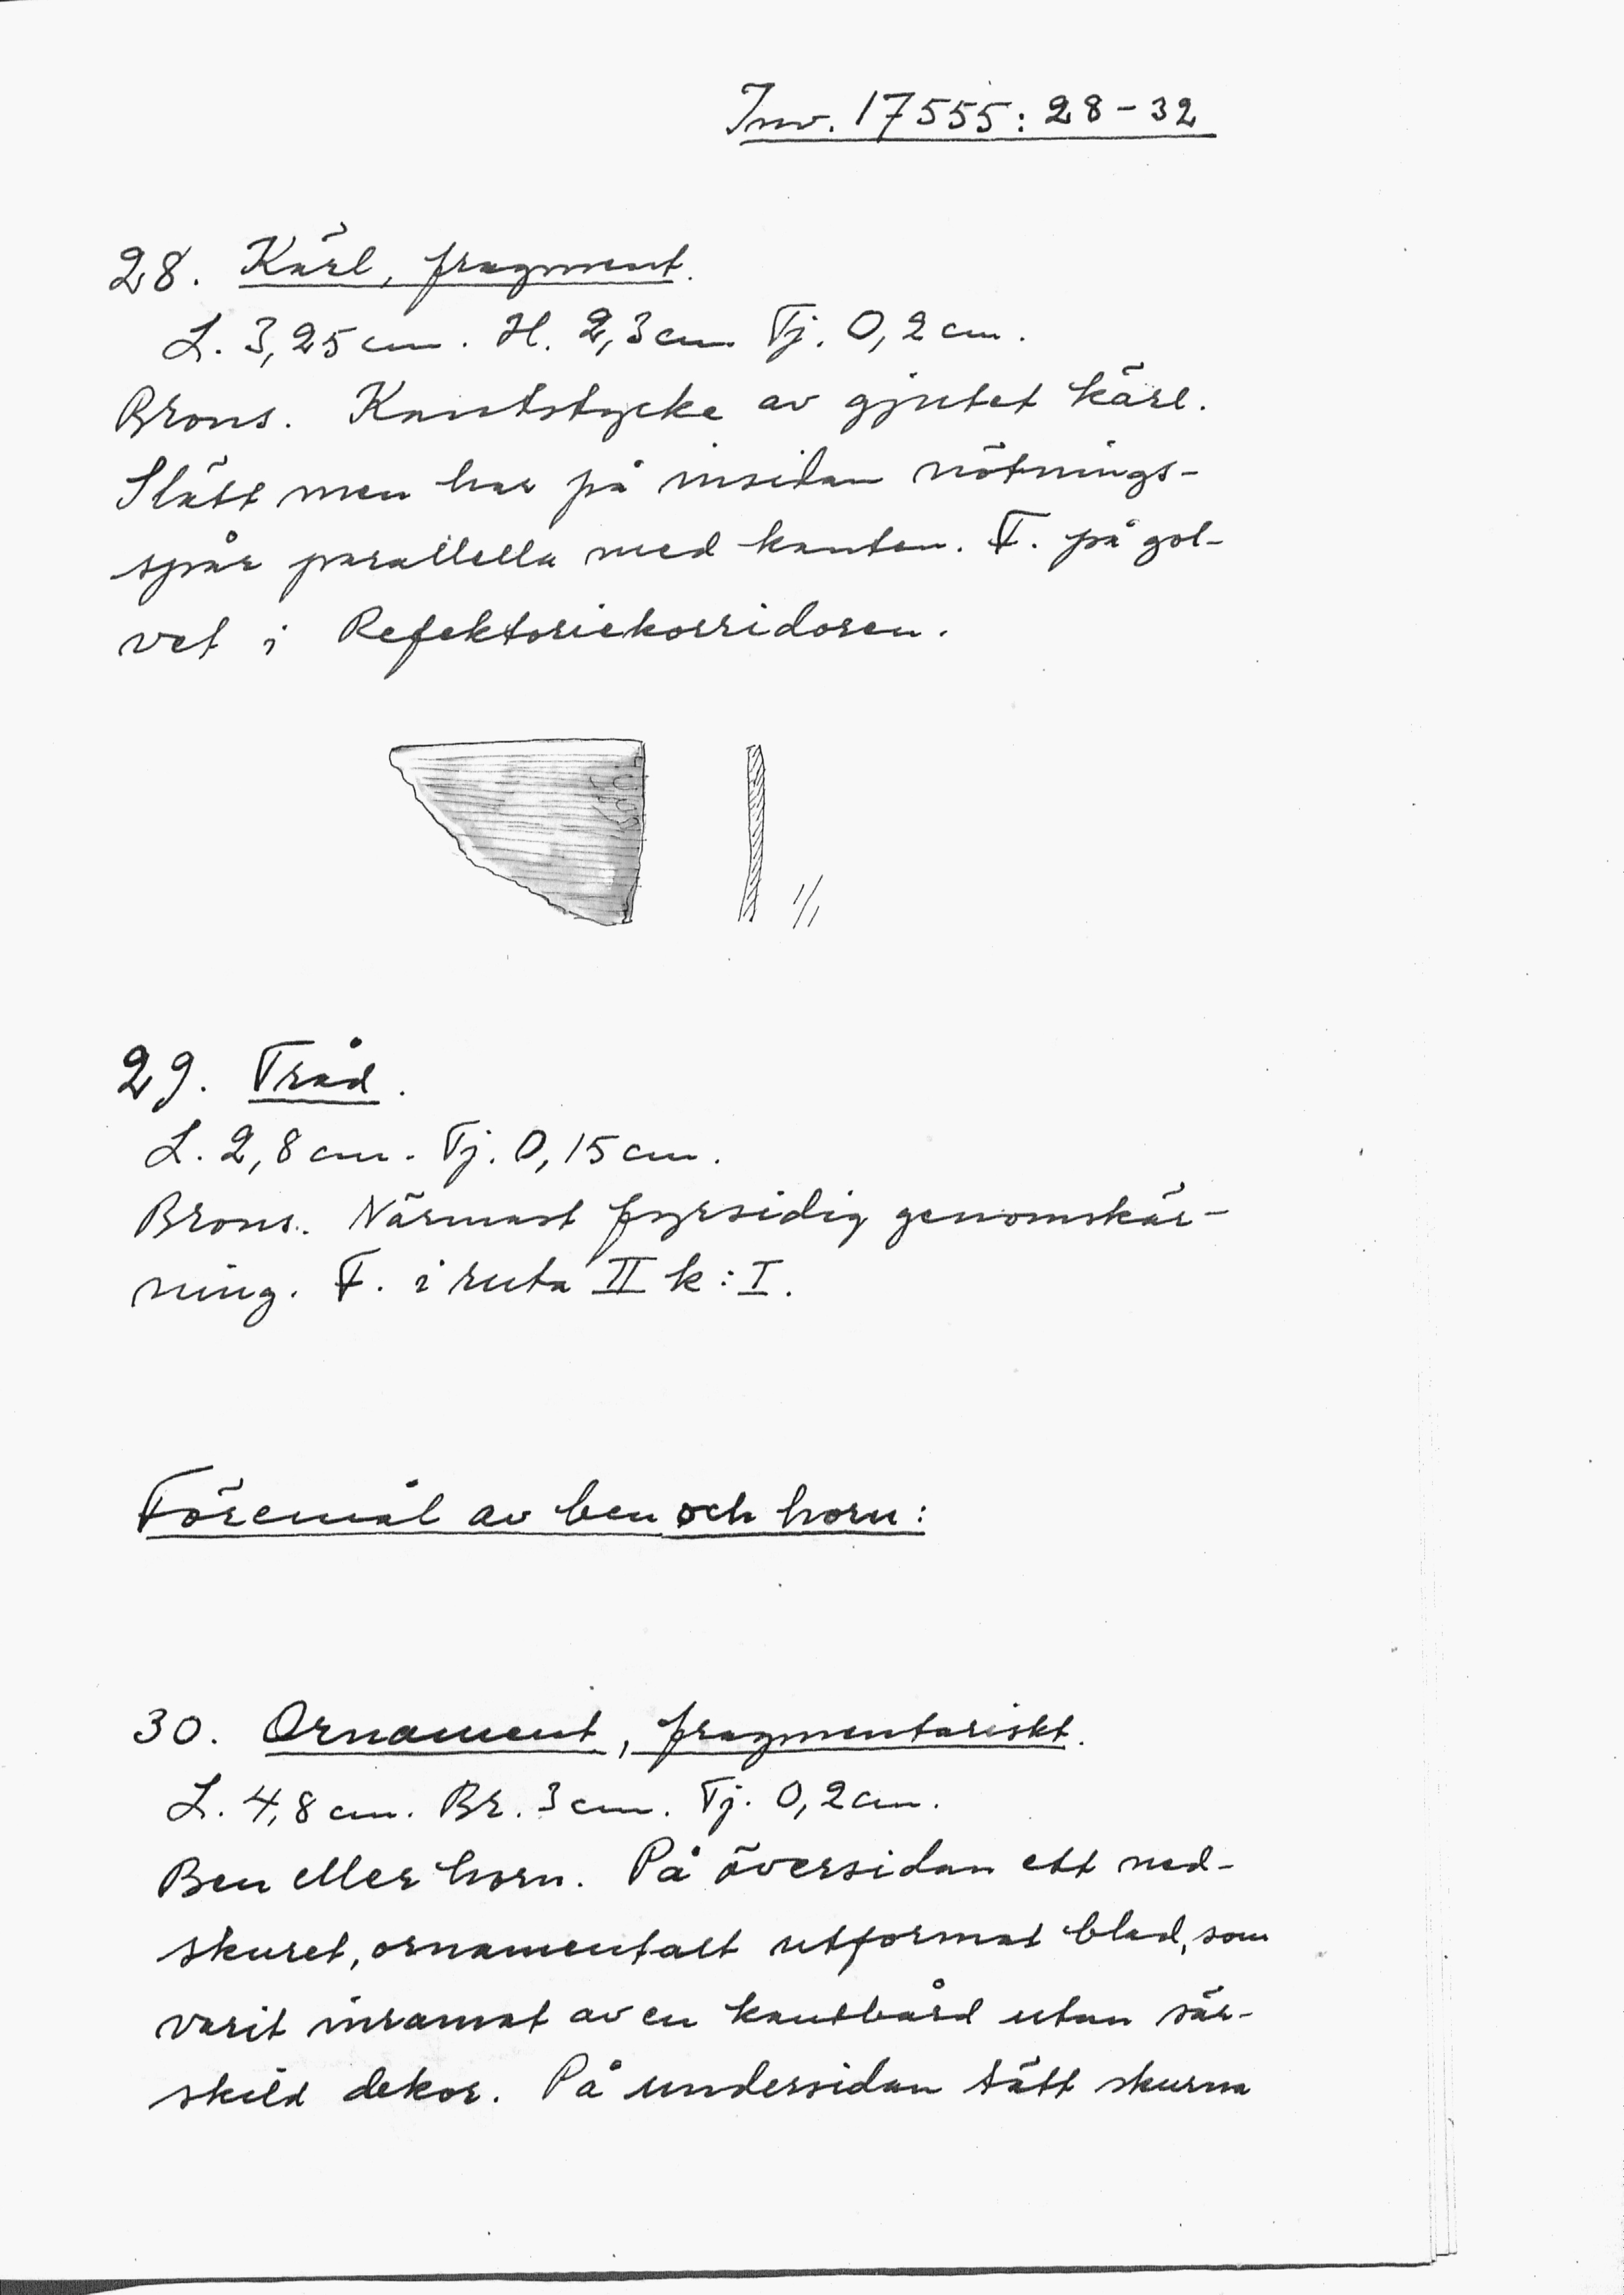 Inv. 17555: 28-32
28. Kärl, fragment.
L. 3,25 cm. H. 2,3 cm Tj. 0,2 cm.
Brons. Kantstycke av gjutet kärl.
Slätt men har på insidan nötnings-
spår parallella med kanten. F. på gol-
vet i Refektoriekorridoren.
1/1
29. Tråd.
L. 2,8 cm. Tj. 0,15 cm.
Brons. Närmast fyrsidig genomskär-
ning. F. i ruta II k: I.
Föremål av ben och horn:
30. Ornament, fragmentariskt.
L. 4,8 cm. Br. 3 cm. Tj. 0,2 cm.
Ben eller horn. På översidan ett ned-
skuret, ornamentalt utformat blad, som
varit inramat av en kantbård utan sär-
skild dekor. På undersidan tätt skurna